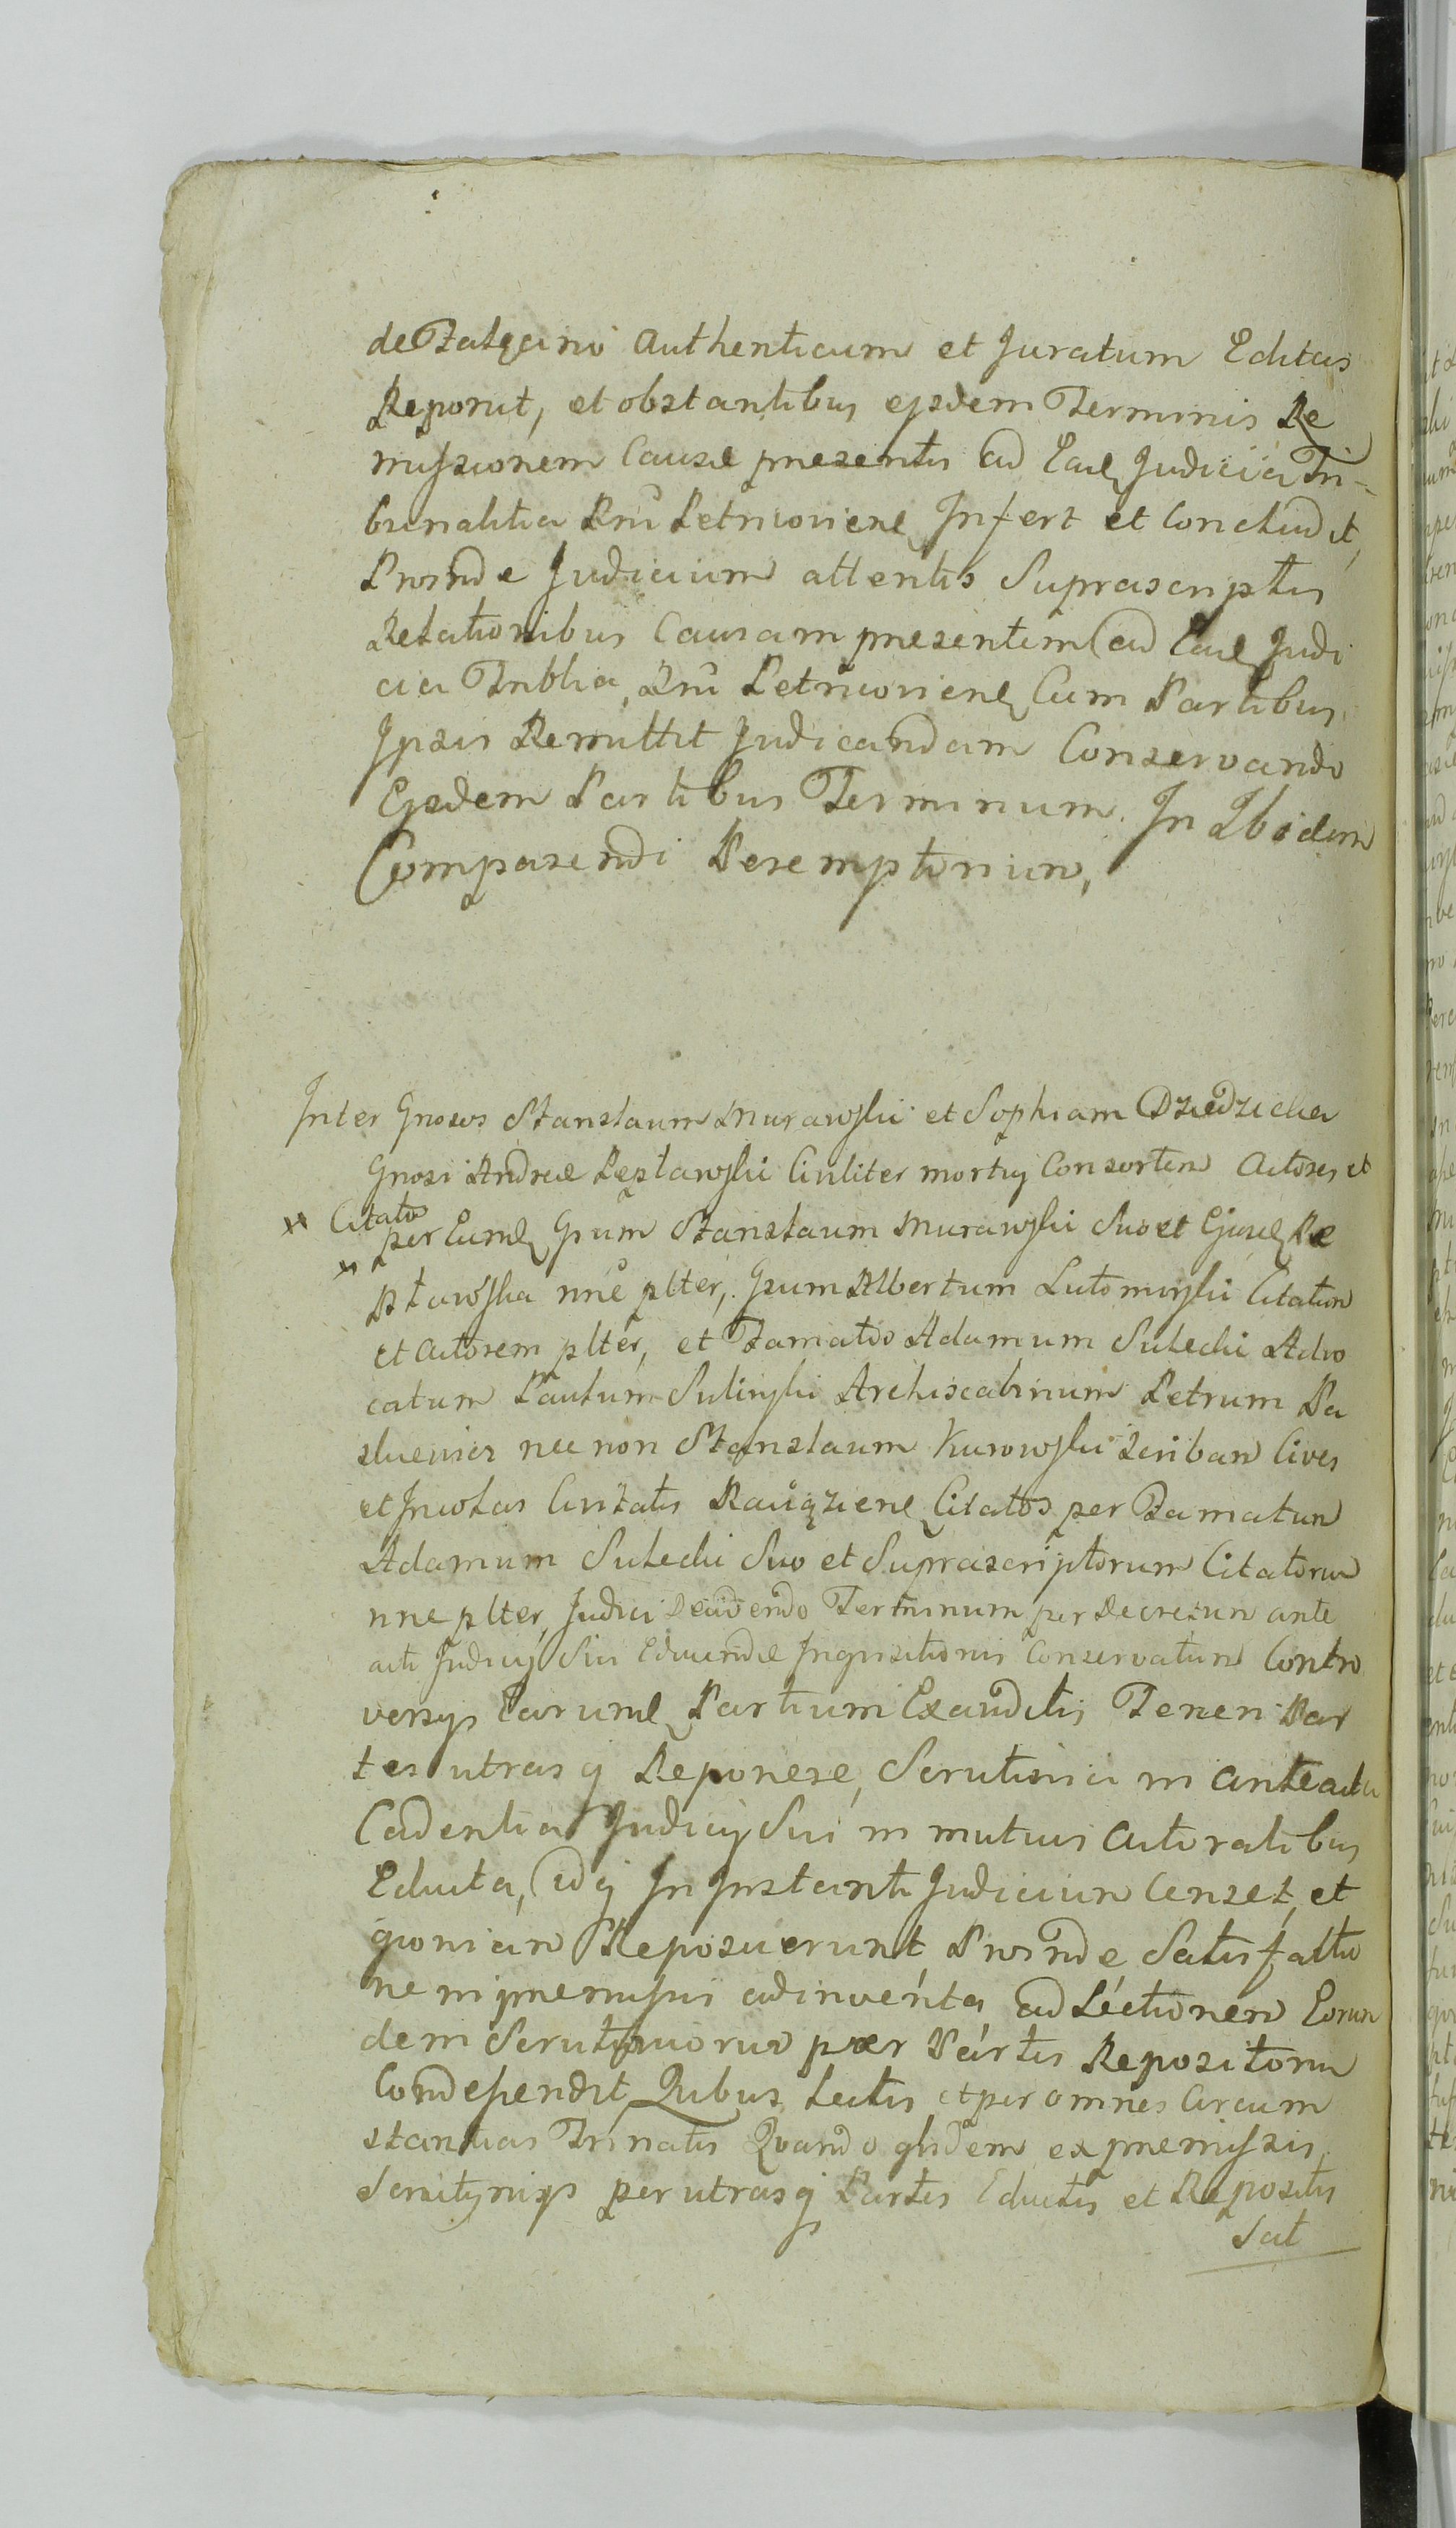 de Załęcino Authenticum et Juratum Editas
Reponit, et obstantibus ejsdem Terminis Re
missionem Causæ presentis ad Eadē Judicia Tri-
bunalitia Rni Petricoviene Infert et Concludit,
Proinde Judicium attentis Suprascriptis
Relationibus Causam presentem ad Eadē Judi
cia Triblia, Rni Petricoviene Cum Partibus
Ipsis Remittit Judicandam Conservando
Ejsdem Partibus Terminum In Ibidem
Comparendi Peremptorium,
Inter Gnosos Stanslaum Murawski et Sophiam Dziedzicka
Gnosi Andreæ Civiliter mortuj Consortem Actores et
× Citato
× per Eumdē Gsum Stanslaum Murawski Suo et Ejusdē
nne plter, Gsum Albertum Lutomirski Citatum
et Actorem plter, et Famatos Adamum Sulecki Advo
catum Paulum Suliński Archiscabinum Petrum Pa
necnon Stanslaum Kurowski Scribam Cives
et Incolas Civitatis Citatos per Famatum
Adamum Sulecki Suo et Suprascriptorum Citatorum
nne plter, Judici Terminum per Decretum ante
acti Judicij Sui Educendæ Inquisitionis Conservatum Contro
versijs Earumdē Partium Exauditis Teneri Par
tes utrasq Reponere, Scrutinia in anteacta
Cadentia Judicij Sui in mutuis Actoratibus
Educta, idq In Instanti Judicium Censet, et
quoniam Reposuerunt, Proinde Satisfactio
ne in premissis adinventa, ad Lectionem Eorun
dem Scrutiniorum per Partes Repositorum
Condescendit, Quibus Lectis et per omnes Circum
stantias Trinatis Quandoquidem ex premissis
Scrutinijs per utrasq Partes Eductis et Repositis
Sat